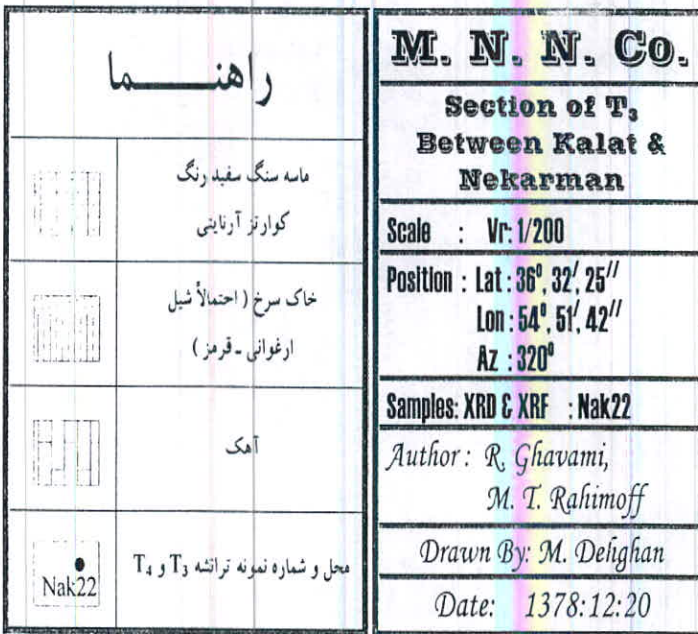 راهنــــــما
ماسه سنگ سفید رنگ
کوارتز آرنایتی
خاک سرخ ( احتمالاً شیل
ارغوانی - قرمز )
آهک
محل و شماره نمونه ترانشه T₃ و T₄
Nak22
M. N. N. Co.
Section of T₃
Between Kalat &
Nekarman
Scale : Vr: 1/200
Position : Lat : 36⁰, 32′, 25′′
Lon : 54⁰, 51′, 42′′
Az : 320⁰
Samples: XRD & XRF : Nak22
Author : R. Ghavami,
M. T. Rahimoff
Drawn By: M. Dehghan
Date: 1378:12:20